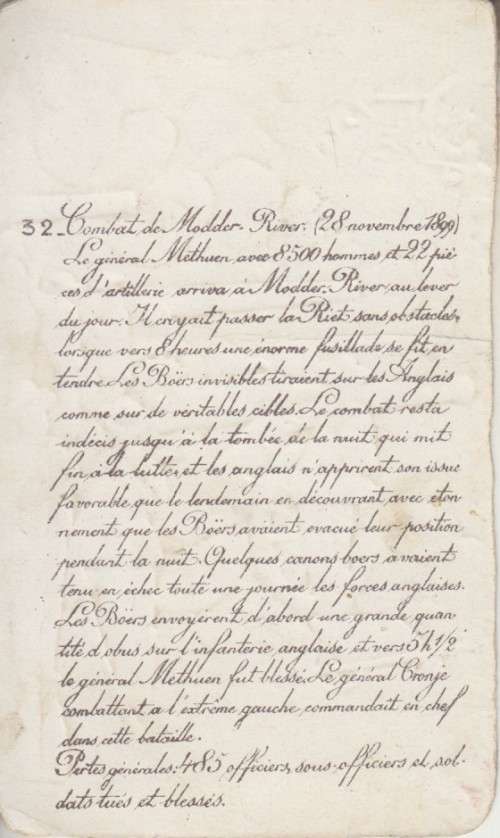 32_Combat de Modder-River. (28 novembre 1899)
Le général Méthuen, avec 8500 hommes et 22 piè
ces d'artillerie arriva à Modder-River, au lever
du jour. Il croyait passer la Riet sans obstacles,
lorsque vers 8 heures une énorme fusillade se fit en
tendre. Les Böërs invisibles tiraient sur les Anglais
comme sur de véritables cibles. Le combat resta
indécis jusqu'à la tombée de la nuit qui mit
fin à la lutte, et les anglais n'apprirent son issue
favorable que le lendemain en découvrant avec éton
nement que les Böërs avaient evacué leur position
pendant la nuit. Quelques canons boers avaient
tenu en échec toute une journée les forces anglaises.
Les Böërs envoyèrent d'abord une grande quan
tité d'obus sur l'infanterie anglaise et vers 5h1/2
le général Méthuen fut blessé. Le général Cronje
combattant a l'extrême gauche, commandait en chef
dans cette bataille.
Pertes générales: 485 officiers, sous-officiers et sol-
dats tués et blessés.